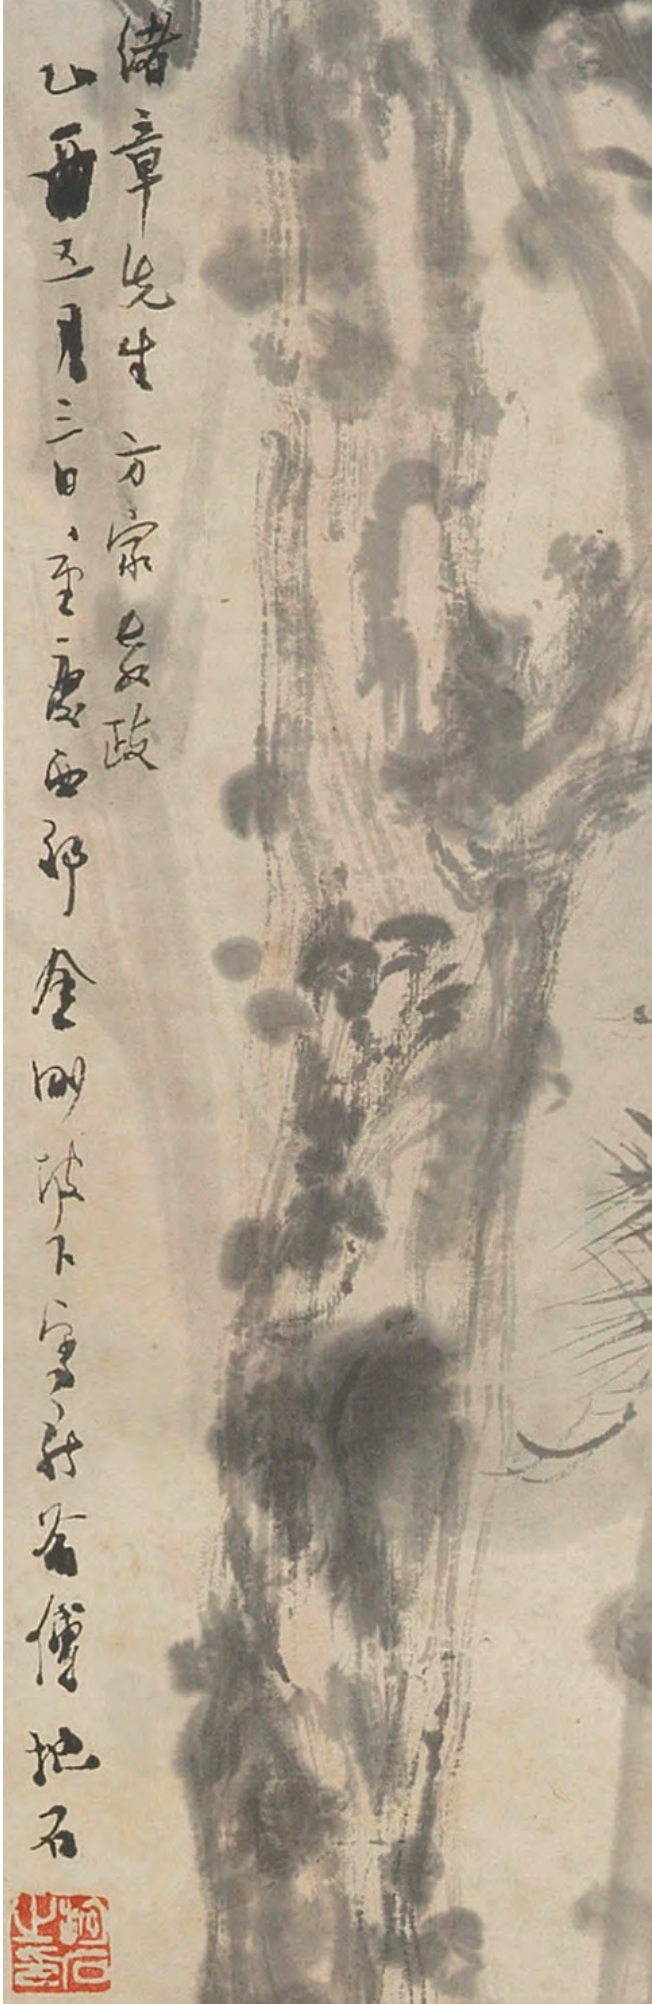 緒章先生方家教政
乙酉五月三日重慶西郊金剛坡下寫新喻傅抱石
抱石之印